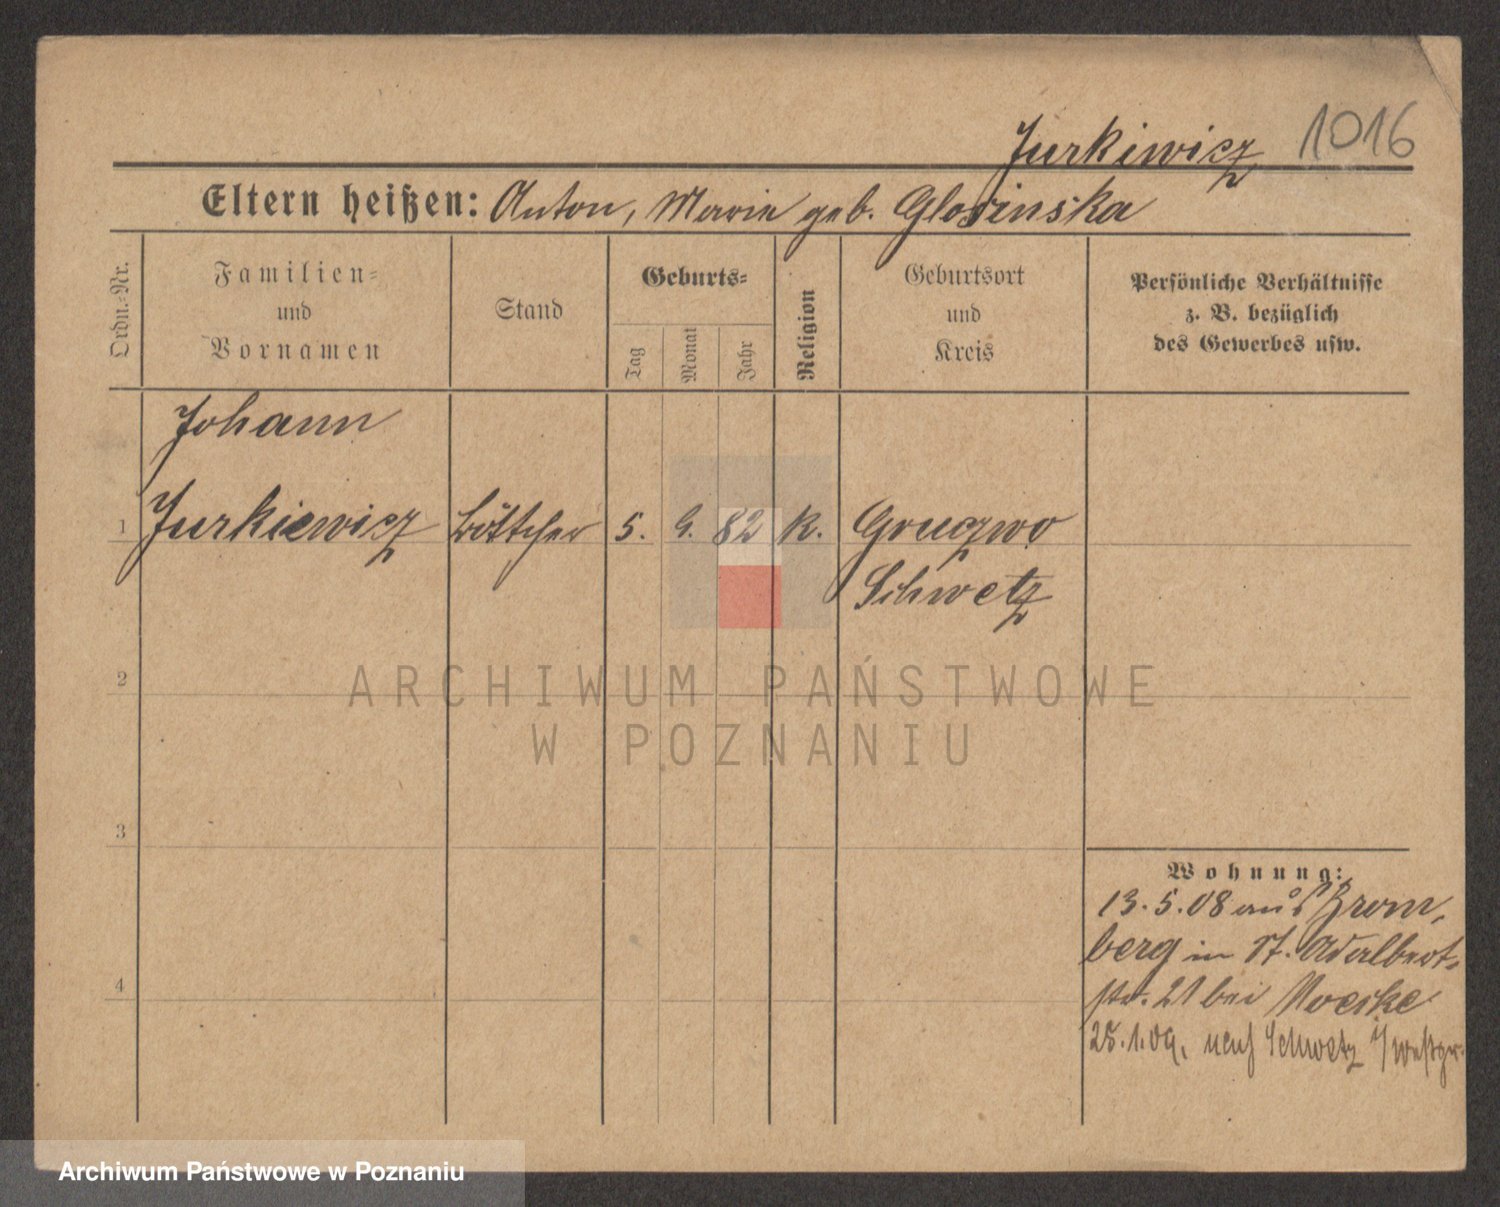 Jurkiwicz 1016
Eltern heißen: Anton, Marie geb. Glosinska
Ordn.-Nr.
Familien-
und
Vornamen
Stand
Geburts-
Tag
Monat
Jahr
Religion
Geburtsort
und
Kreis
Persönliche Verhältnisse
z. B. bezüglich
des Gewerbes usw.
Johann
1 Jurkiewicz Böttcher 5. 9. 82 K. Gruczwo
Schwetz
ARCHIWUM PAŃSTWOWE
W POZNANIU
2
3
4
Wohnung:
13.5.08 aus Brom-
berg in St. Adalbert-
str. 21 bei Noeske
25.1.09. nach Schwetz
Archiwum Państwowe w Poznaniu